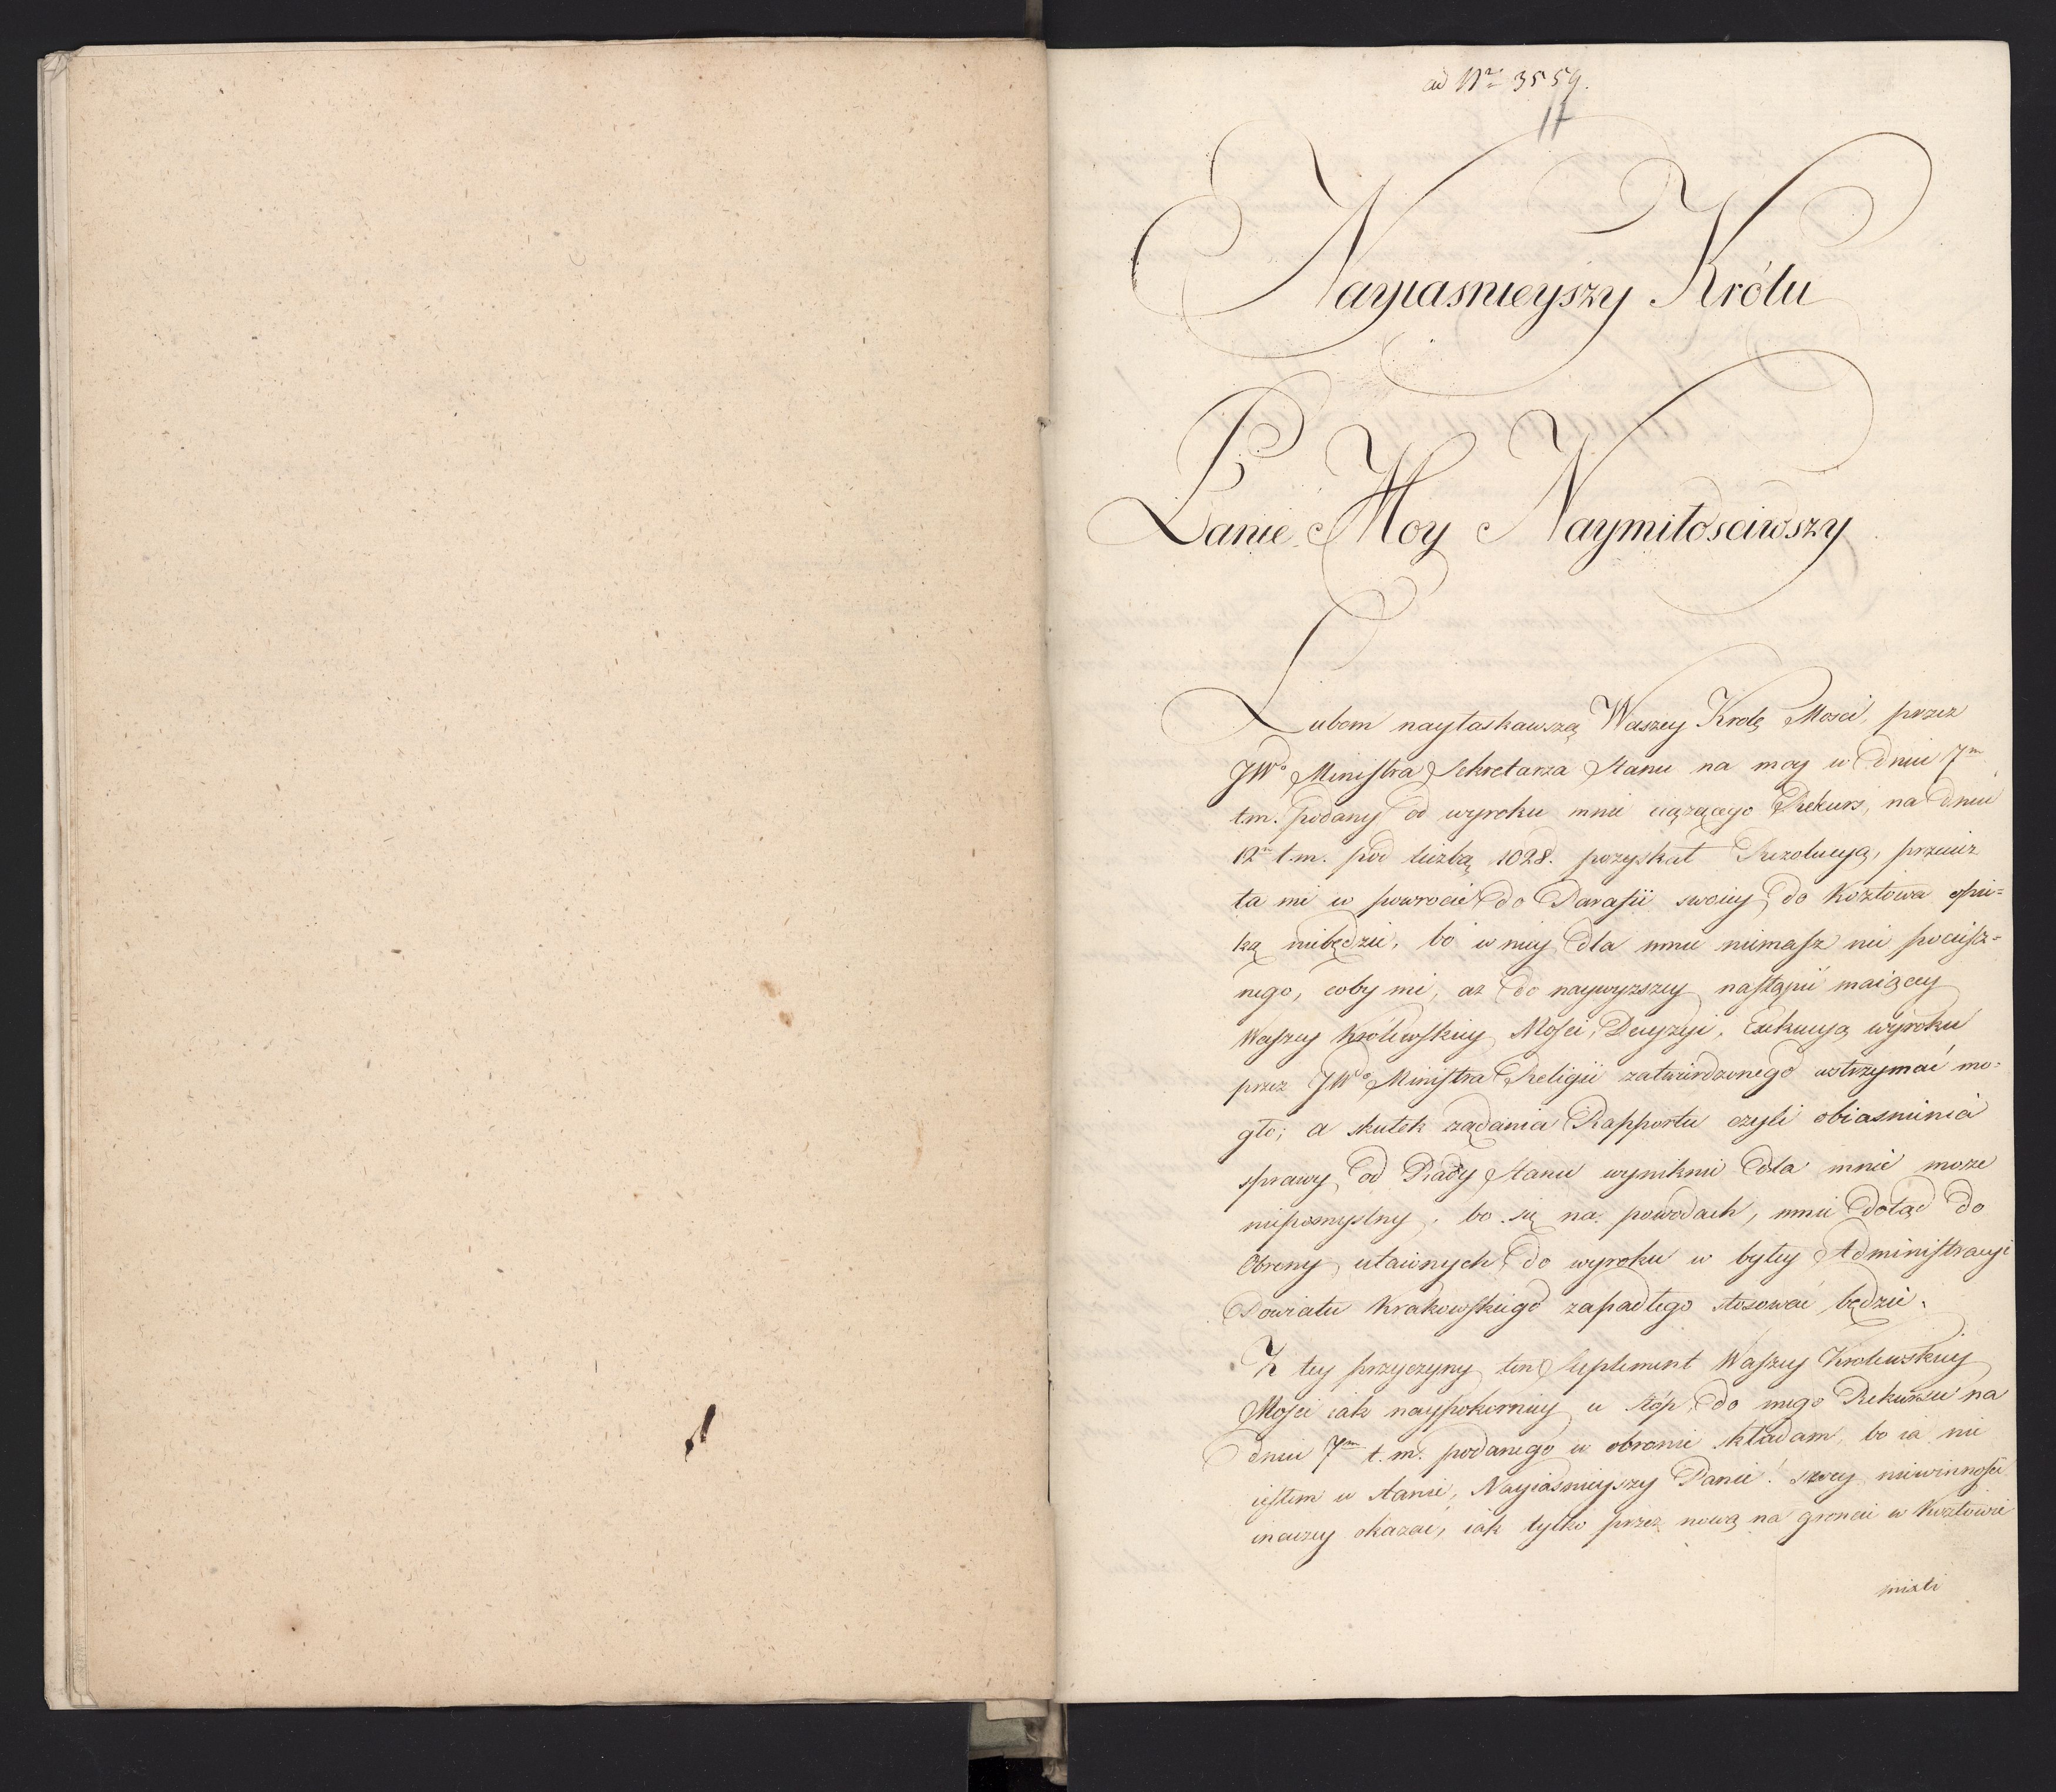 ad Nro 3559.
17
Nayiasnieyszy Królu
Panie Moy Naymiłosciwszy
Lubom nayłaskawszą Waszey Krolę Mosci, przez
JWo Ministra Sekretarza Stanu na moy w Dniu 7m
t.m. podany od wyroku mnie ciążącego Rekurs, na dniu
12m t.m. pod liczbą 1028. pozyskał Rezolucyą, przecież
ta mi w powrocie do Parafii swoiey do Kozłowa opie=
ką niebędzie, bo w niey dla mnie niemasz nic pociesz=
nego, coby mi, aż do naywyzszey nastąpić maiącey
Waszey Królewskiey Mości Decyzyi, Exekucyą wyroku
przez JWo Ministra Religii zatwierdzonego wstrzymać mo=
gło; a skutek ządania Rapportu czyli obiasnienia
sprawy, od Rady Stanu wyniknie dla mnie moze
niepomyslny, bo się na powodach, mnie dotąd do
Obrony utaionych, do wyroku w byłey Administracyi
Powiatu Krakowskiego zapadłego stosować będzie.
Z tey przyczyny ten Suplement Waszey Krolewskiey
Mości iak naypokorniey u stóp, do mego Rekursu na
dniu 7m t.m. podanego w obronie składam, bo ia nie
iestem w stanie, Nayiasnieyszy Panie! swey niewinności
inaczey okazać, iak tylko przez nową na groncie w Kozłowie